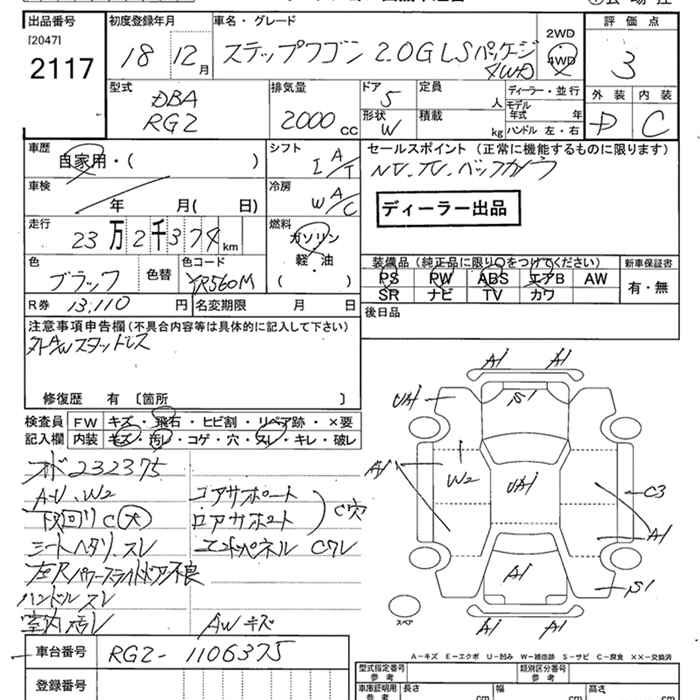 出品番号 初度登録年月 車名・グレード 評価点
[2047]
2117
18 12月 ステップワゴン 2.0G LSパッケージ 4WD
2WD
4WD
3
型式 排気量 ドア 定員 ディーラー・並行 外装 内装
DBA 5 人 モデル年式 年
RG2 2000cc 形状 W 積載 kg ハンドル 左・右 D C
車歴 シフト セールスポイント (正常に機能するものに限ります)
自家用・( ) IA/T NV.TV.バックカメラ
車検 冷房
年 月( 日) WA/C ディーラー出品
走行 燃料
23万2千374km ガソリン
軽・油
( )
装備品 (純正品に限り○をつけてください) 新車保証書
色 色替 色コード PS PW ABS エアB AW 有・無
ブラック YR560M SR ナビ TV カワ
R券 13,110円 名変期限 月 日 後日品
注意事項申告欄(不具合内容等は具体的に記入して下さい)
外AWスタットレス
修復歴 有 [箇所 ]
検査員 FW キズ・飛石・ヒビ割・リペア跡・×要
記入欄 内装 キズ・汚レ・コゲ・穴・スレ・キレ・破レ
オド232375
A-U.W2 コアサポート
下回りC(大) ロアサポート C穴
シートヘタリ.スレ エンドパネル Cワレ
左Rパワースライドドア不良
ハンドルスレ
室内汚レ AWキズ
A1 A1
UA1 S1
A1 W2 UA1 C3
A1
A1 S1
A1 A1
スペア
A-キズ E-エクボ U-凹み W-補修跡 S-サビ C-腐食 XX-交換済
車台番号 RG2-1106375
登録番号
型式指定番号 参考 類別区分番号 参考
車庫証明用 参考 長さ cm 幅 cm 高さ cm